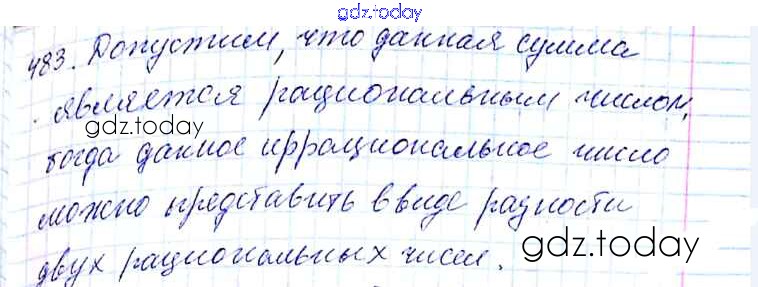 gdz.today
483. Допустим, что данная сумма
является рациональным числом,
gdz.today
тогда данное иррациональное число
можно представить в виде разности
gdz.today
двух рациональных чисел.